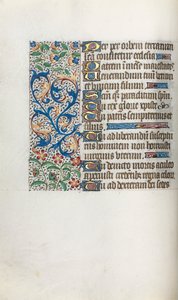 Te per orbem terrarum
sancta confitetur ecclesia
Patrem immense maiestatis
Venerandum tuum verum
et unicum filium
Sanctum quoque paraclitum spm
Tu rex glorie xpiste
Tu patris sempiternus es
filius
Tu ad liberandum suscepturus
hominem non horruisti
virginis uterum
Tu devicto mortis aculeo
aperuisti credentibus regna celorum
Tu ad dexteram dei sedes